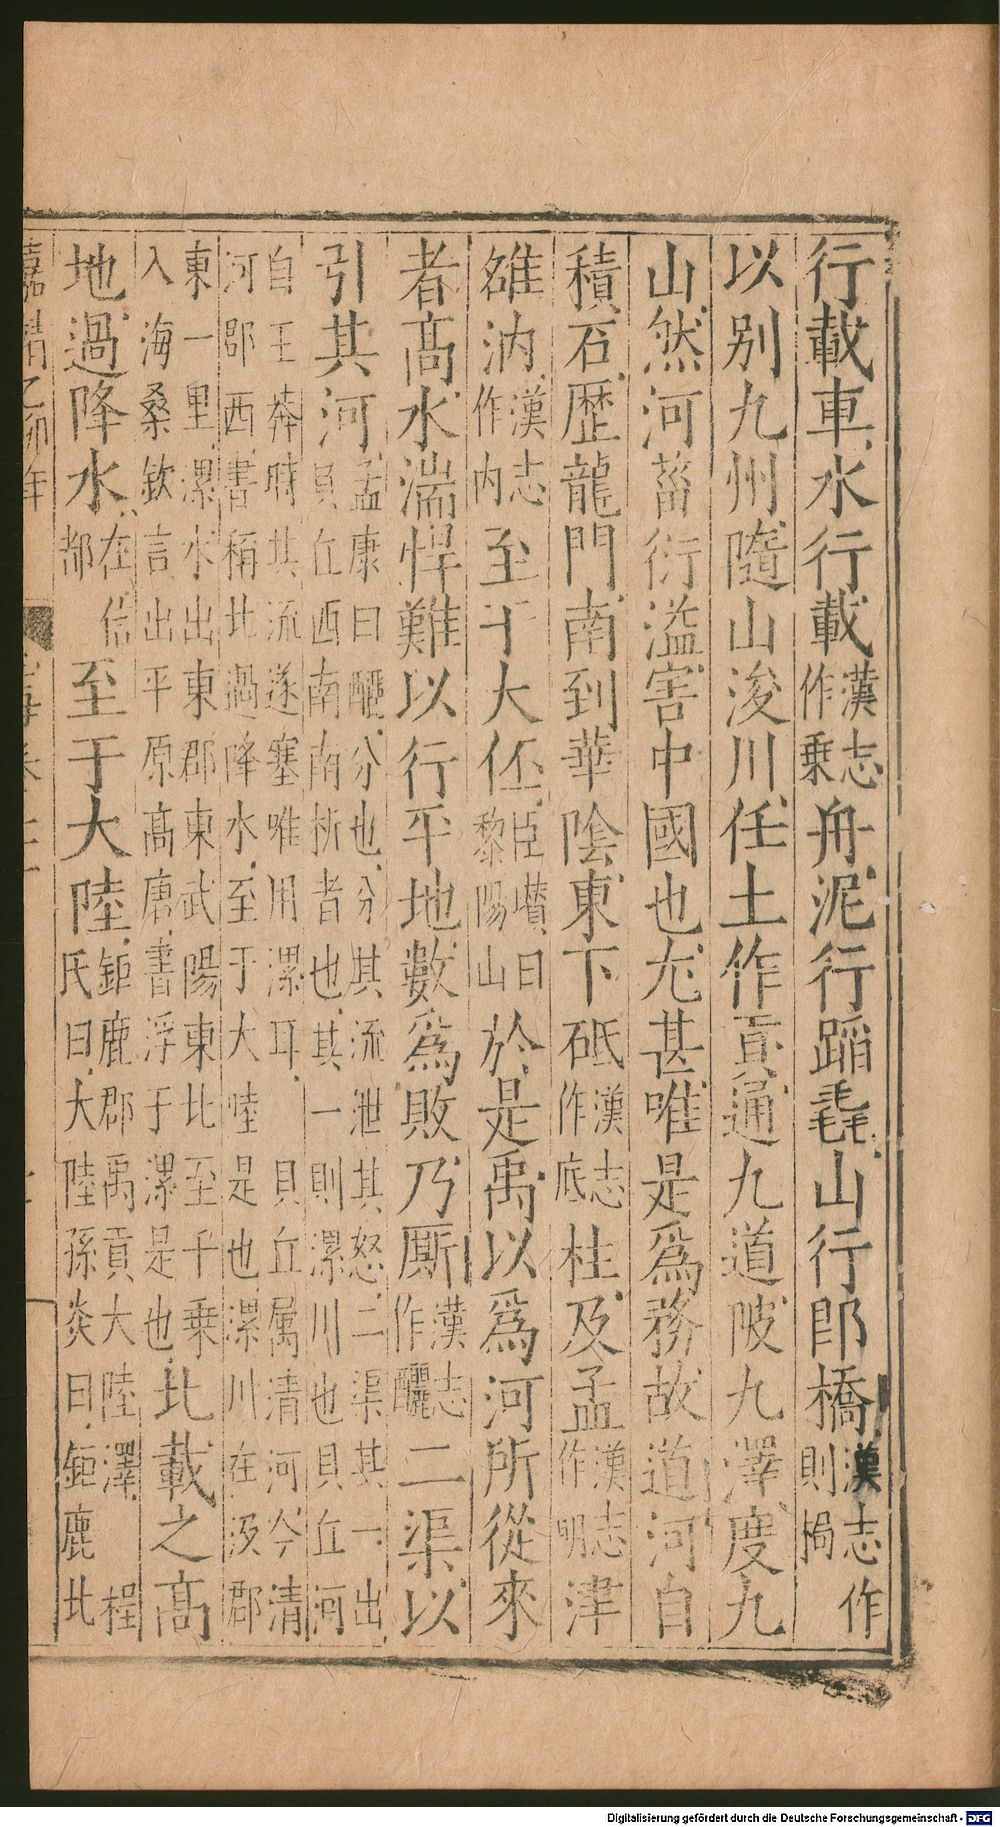 行載車水行載漢志作乗舟泥行蹈毳山行即橋漢志作則挶
以別九州隨山浚川任土作貢通九道陂九澤度九
山然河菑衍溢害中國也尤甚唯是爲務故道河自
積石歴龍門南到華陰東下砥漢志作底柱及孟漢志作明津
雒汭漢志作内至于大伾臣瓉曰黎陽山於是禹以爲河所從來
者髙水湍悍難以行平地數爲敗乃厮漢志作釃二渠以
引其河孟康曰釃分也分其流泄其怒二渠其一出貝丘西南南折者也其一則漯川也貝丘河
自王莽時其流遂塞唯用漯耳貝丘属清河今清河郡西書稱北過降水至于大陸是也漯川在汲郡
東一里漯水出東郡東武陽東北至千乗入海桑欽言出平原髙唐書浮于漯是也北載之髙
地過降水在信都至于大陸鉅鹿郡禹貢大陸澤程氏曰大陸孫炎曰鉅鹿北
嘉靖乙卯年
Digitalisierung gefördert durch die Deutsche Forschungsgemeinschaft - DFG